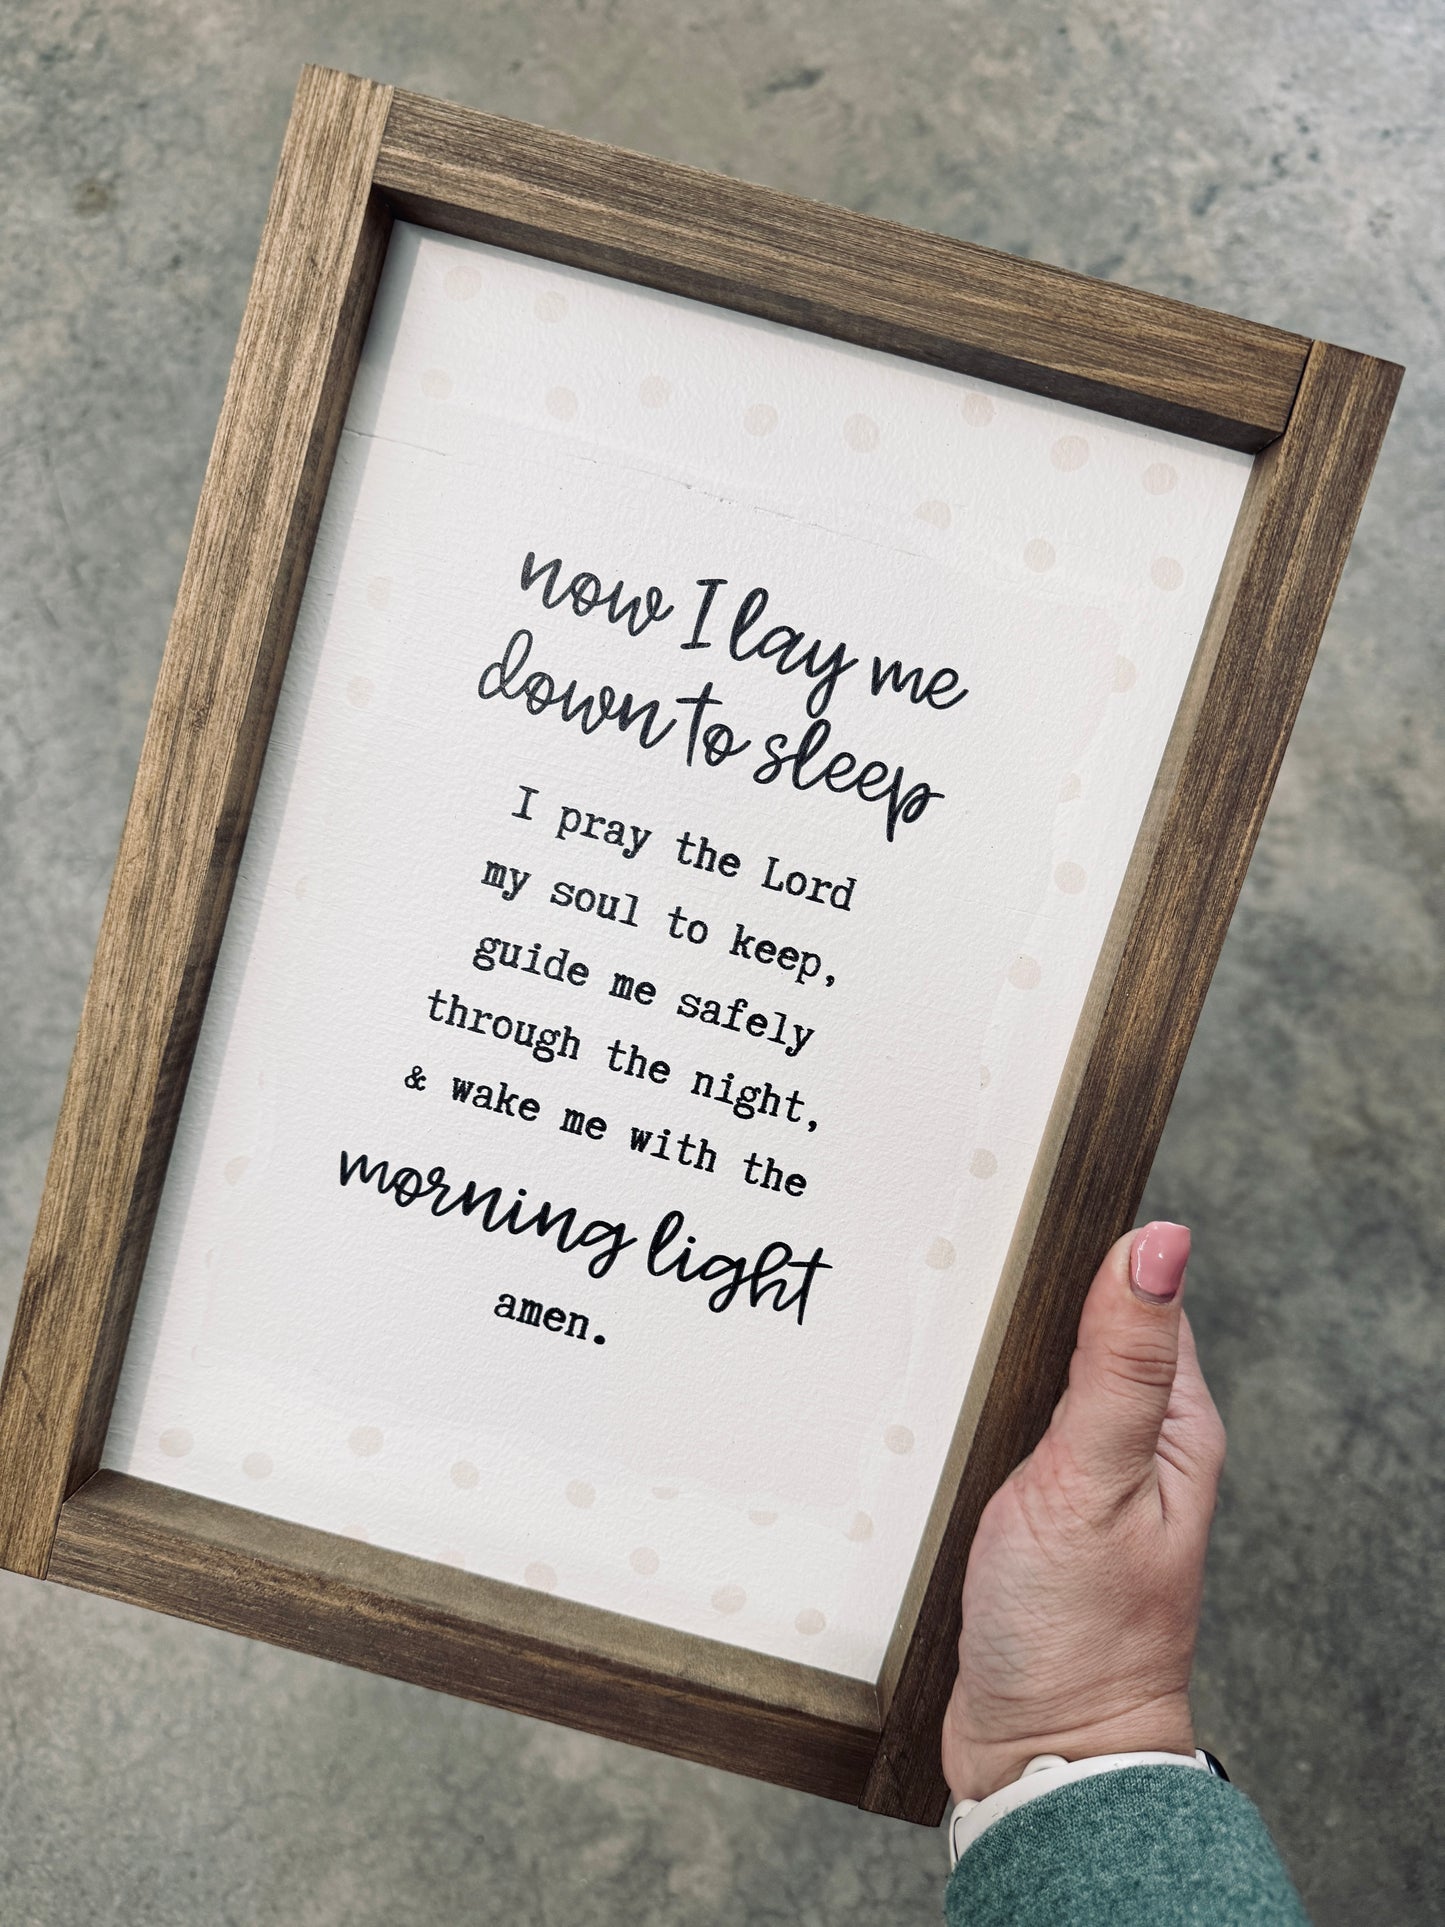 now I lay me
down to sleep
I pray the Lord
my soul to keep,
guide me safely
through the night,
& wake me with the
morning light
amen.